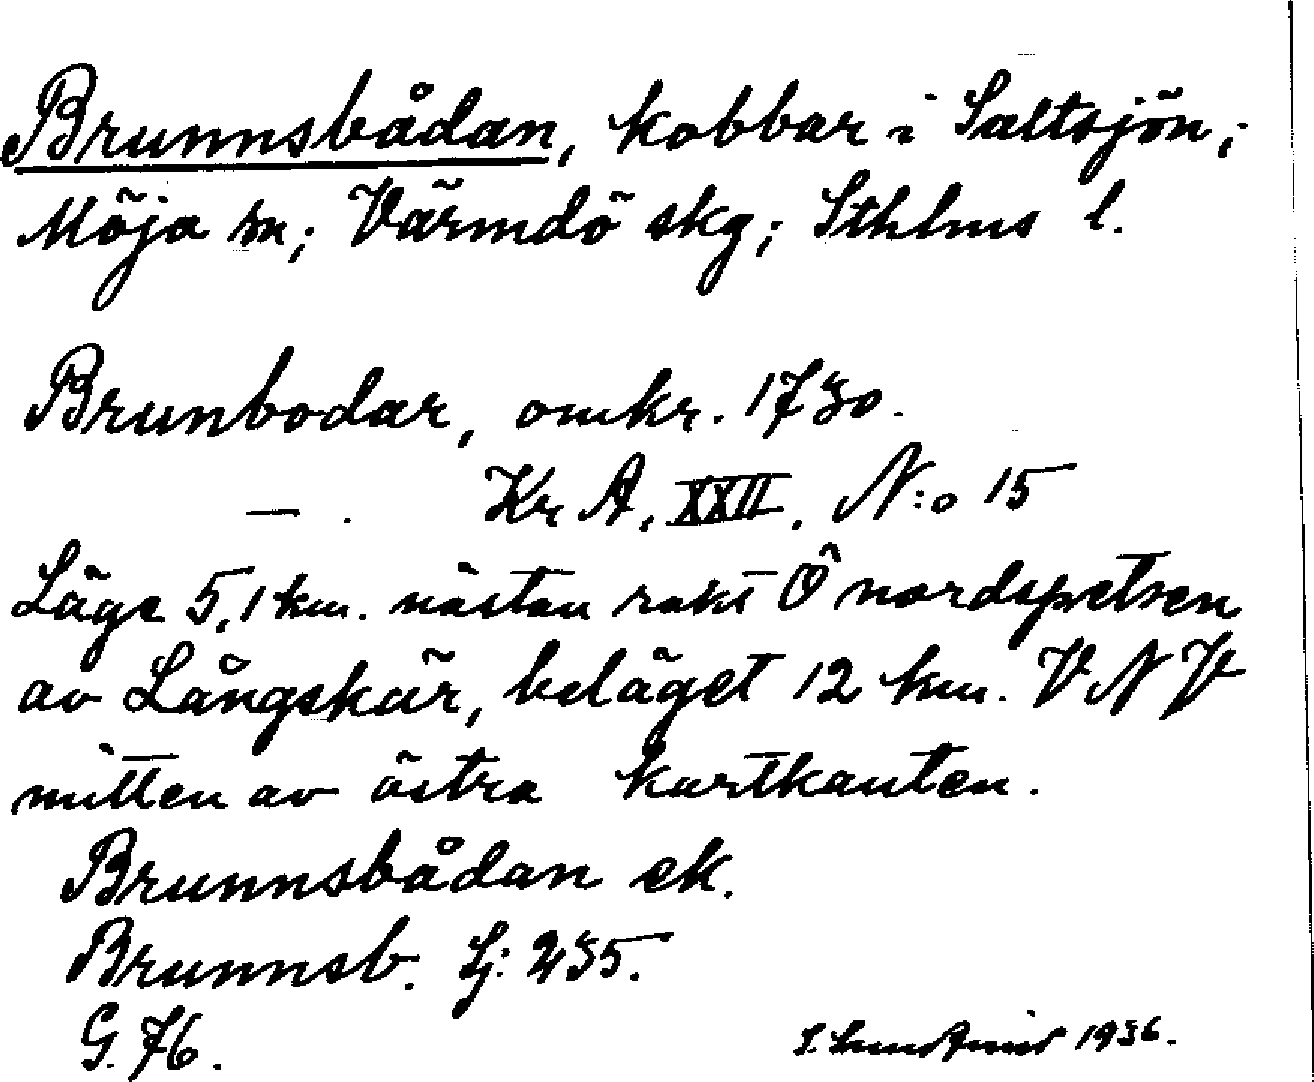 Brunnsbådan, kobbar i Saltsjön,;
Möja sn; Värmdö skg; Sthlms l.
Brunbodar, omkr. 1730.
— . Kr A, XXII. N:o 15
Läge 5,1 km. nästan rakt Ö nordspetsen
av Långskär, beläget 12 km. VNV
mitten av östra kartkanten.
Brunnsbådan ek.
Brunnsb. Sj: 235.
G. 76.
1936.